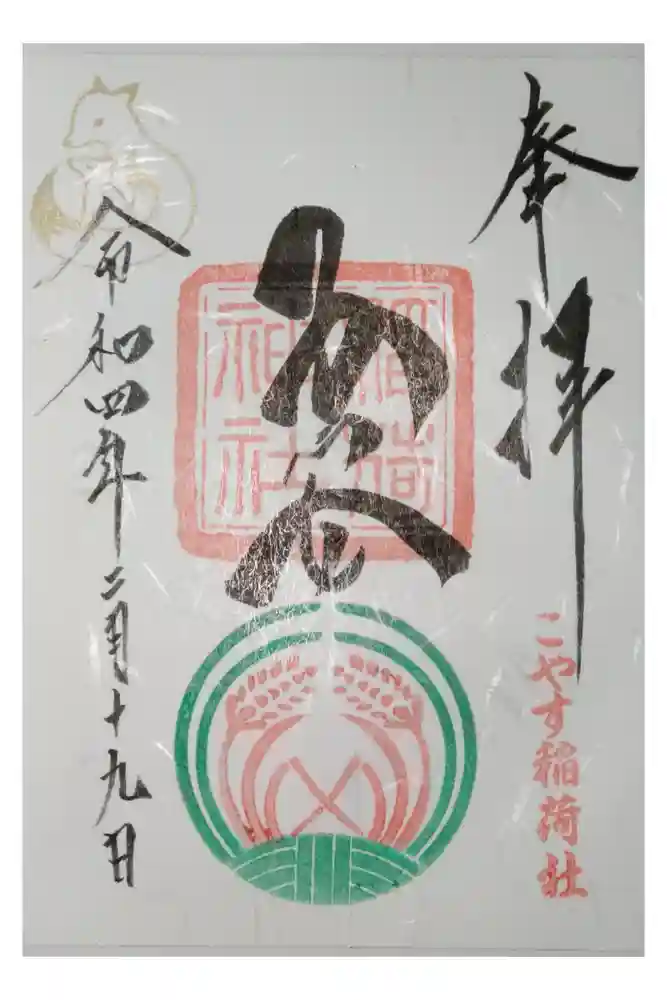 奉拝
こやす稲荷社
稲荷
神社
令和四年二月十九日